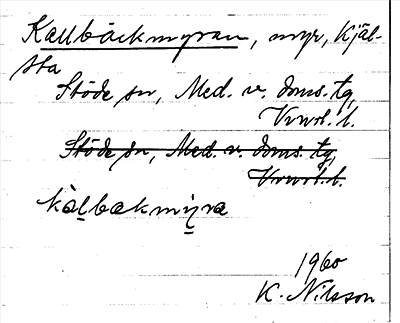 Kallbäckmyran, myr, Kjäl-
sta
Stöde sn, Med. v. doms. tg,
Vrnl. l.
Stöde sn, Med. v. doms. tg,
Vrnl. l.
kàlbakmy̠ra
1960
K. Nilsson